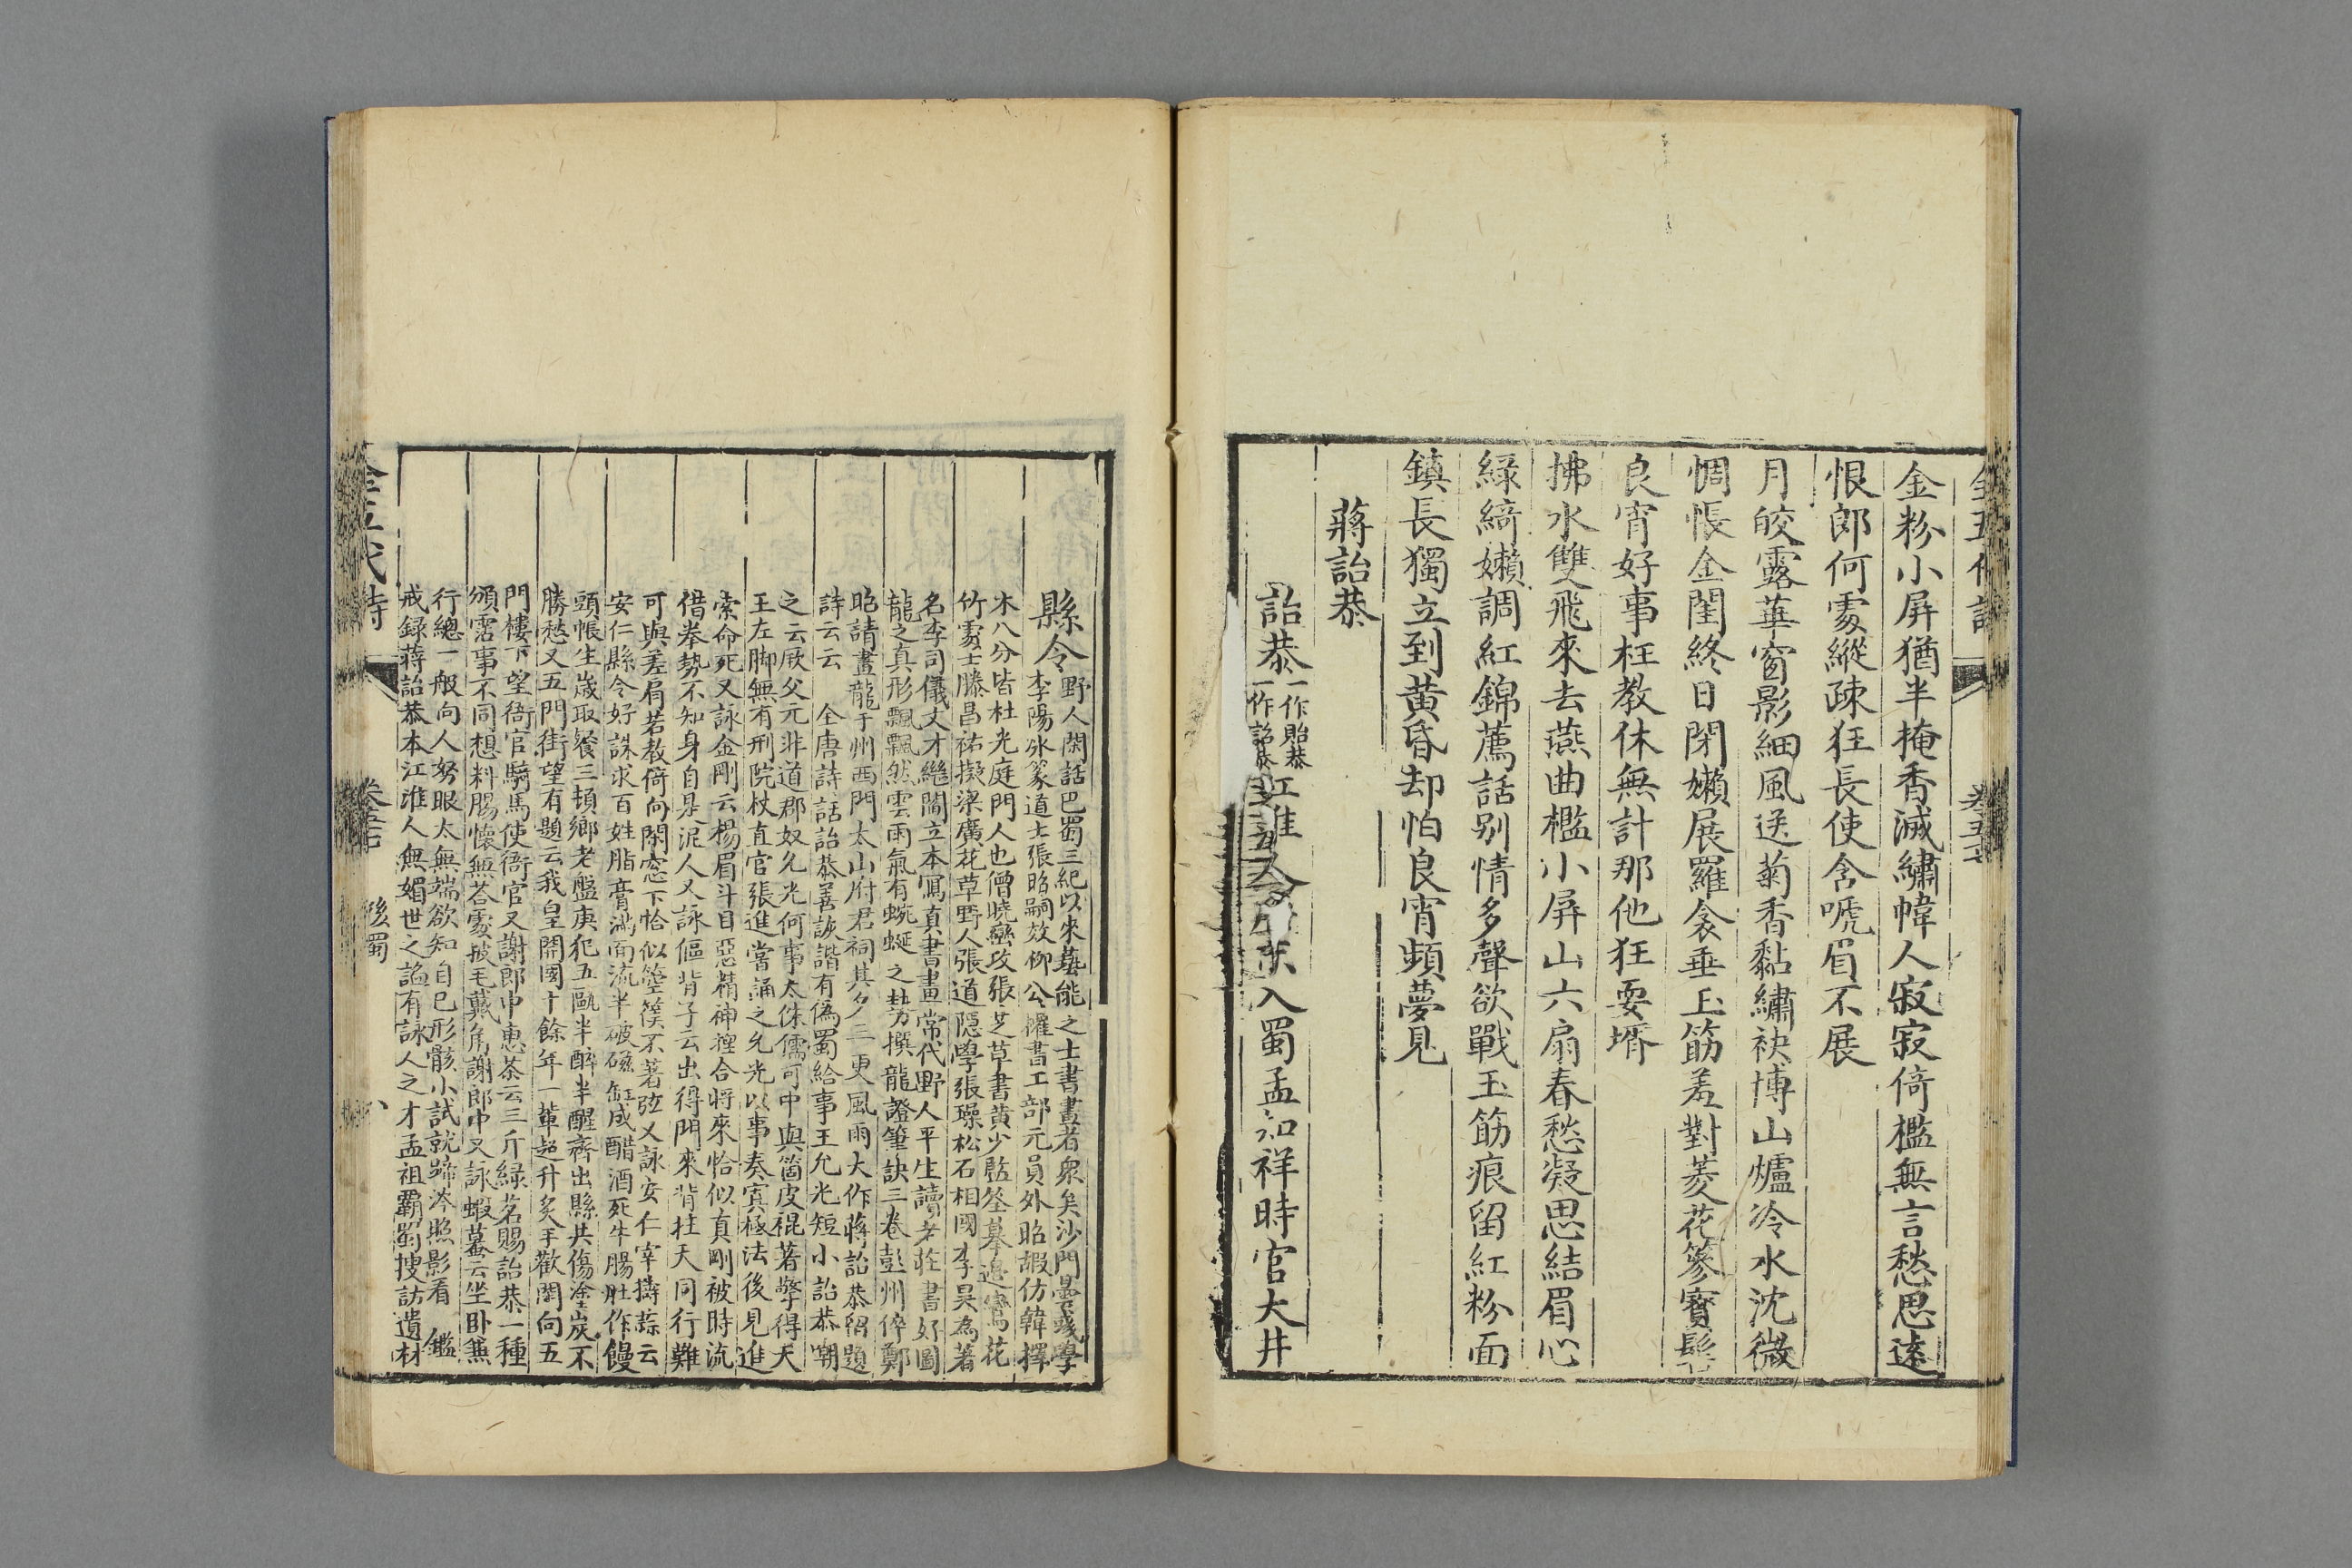 金粉小屏猶半掩香滅繡幃人寂寂倚檻無言愁思遠
恨郎何處縱疎狂長使含嚬眉不展
月皎露華窗影細風送菊香黏繡袂博山爐冷水沈微
惆悵金閨終日閉嬾展羅衾垂玉筯羞對菱花篸寶髻
良宵好事枉教休無計那他狂耍壻
拂水雙飛來去燕曲檻小屏山六扇春愁凝思結眉心
綠綺嬾調紅錦薦話别情多聲欲戰玉筯痕留紅粉面
鎮長獨立到黃昏却怕良宵頻夢見
蔣詒恭
詒恭
一作貽恭
一作詔恭
江淮人
入蜀孟知祥時官大井
縣令
野人閑話巴蜀三紀以來藝能之士書畫者衆矣沙門曇域學
李陽氷篆道士張昭嗣效柳公權書工部元員外昭嘏仿韓擇
木八分皆杜光庭門人也僧曉巒攻張芝草書黄少監筌摹邉鸞花
竹處士滕昌祐擬梁廣花草野人張道隱學張璪松石相國李昊為著
名李司儀文才繼閻立本寫真書畫當代野人平生讀老莊書好圖
龍之真形飄飄然雲雨氣有蜿蜒之勢撰龍證筆訣三卷彭州倅鄭
昭請畫龍于州西門太山府君祠其夕三更風雨大作蔣詒恭留題
詩云云　全唐詩話詒恭善詼諧有偽蜀給事王允光短小詒恭嘲
之云厥父元非道郡奴允光何事太侏儒可中與箇皮裩著擎得天
王左脚無有刑院杖直官張進嘗誦之允光以事奏寘極法後見進
索命死又詠金剛云楊眉斗目惡精神揑合將來恰似真剛被時流
借拳勢不知身自是泥人又詠傴背子云出得門來背拄天同行難
可與差肩若教倚向閑窓下恰似箜篌不著弦又詠安仁宰擣蒜云
安仁縣令好誅求百姓脂膏滿面流半破磁缸成醋酒死牛腸肚作饅
頭帳生歲取餐三頓鄉老盤庚犯五甌半醉半醒齊出縣共傷塗炭不
勝愁又五門街望有題云我皇開國十餘年一輩超升炙手歡閑向五
門樓下望衙官騎馬使衙官又謝郎中惠茶云三斤綠茗賜詒恭一種
頒霑事不同想料腸懷無荅處披毛戴角謝郎中又詠蝦蟇云坐卧兼
行總一般向人努眼太無端欲知自己形骸小試就蹄涔照影看　鑑
戒録蔣詒恭本江淮人無媚世之諂有詠人之才孟祖霸蜀搜訪遺材
全五代詩
卷五十七
後蜀
八